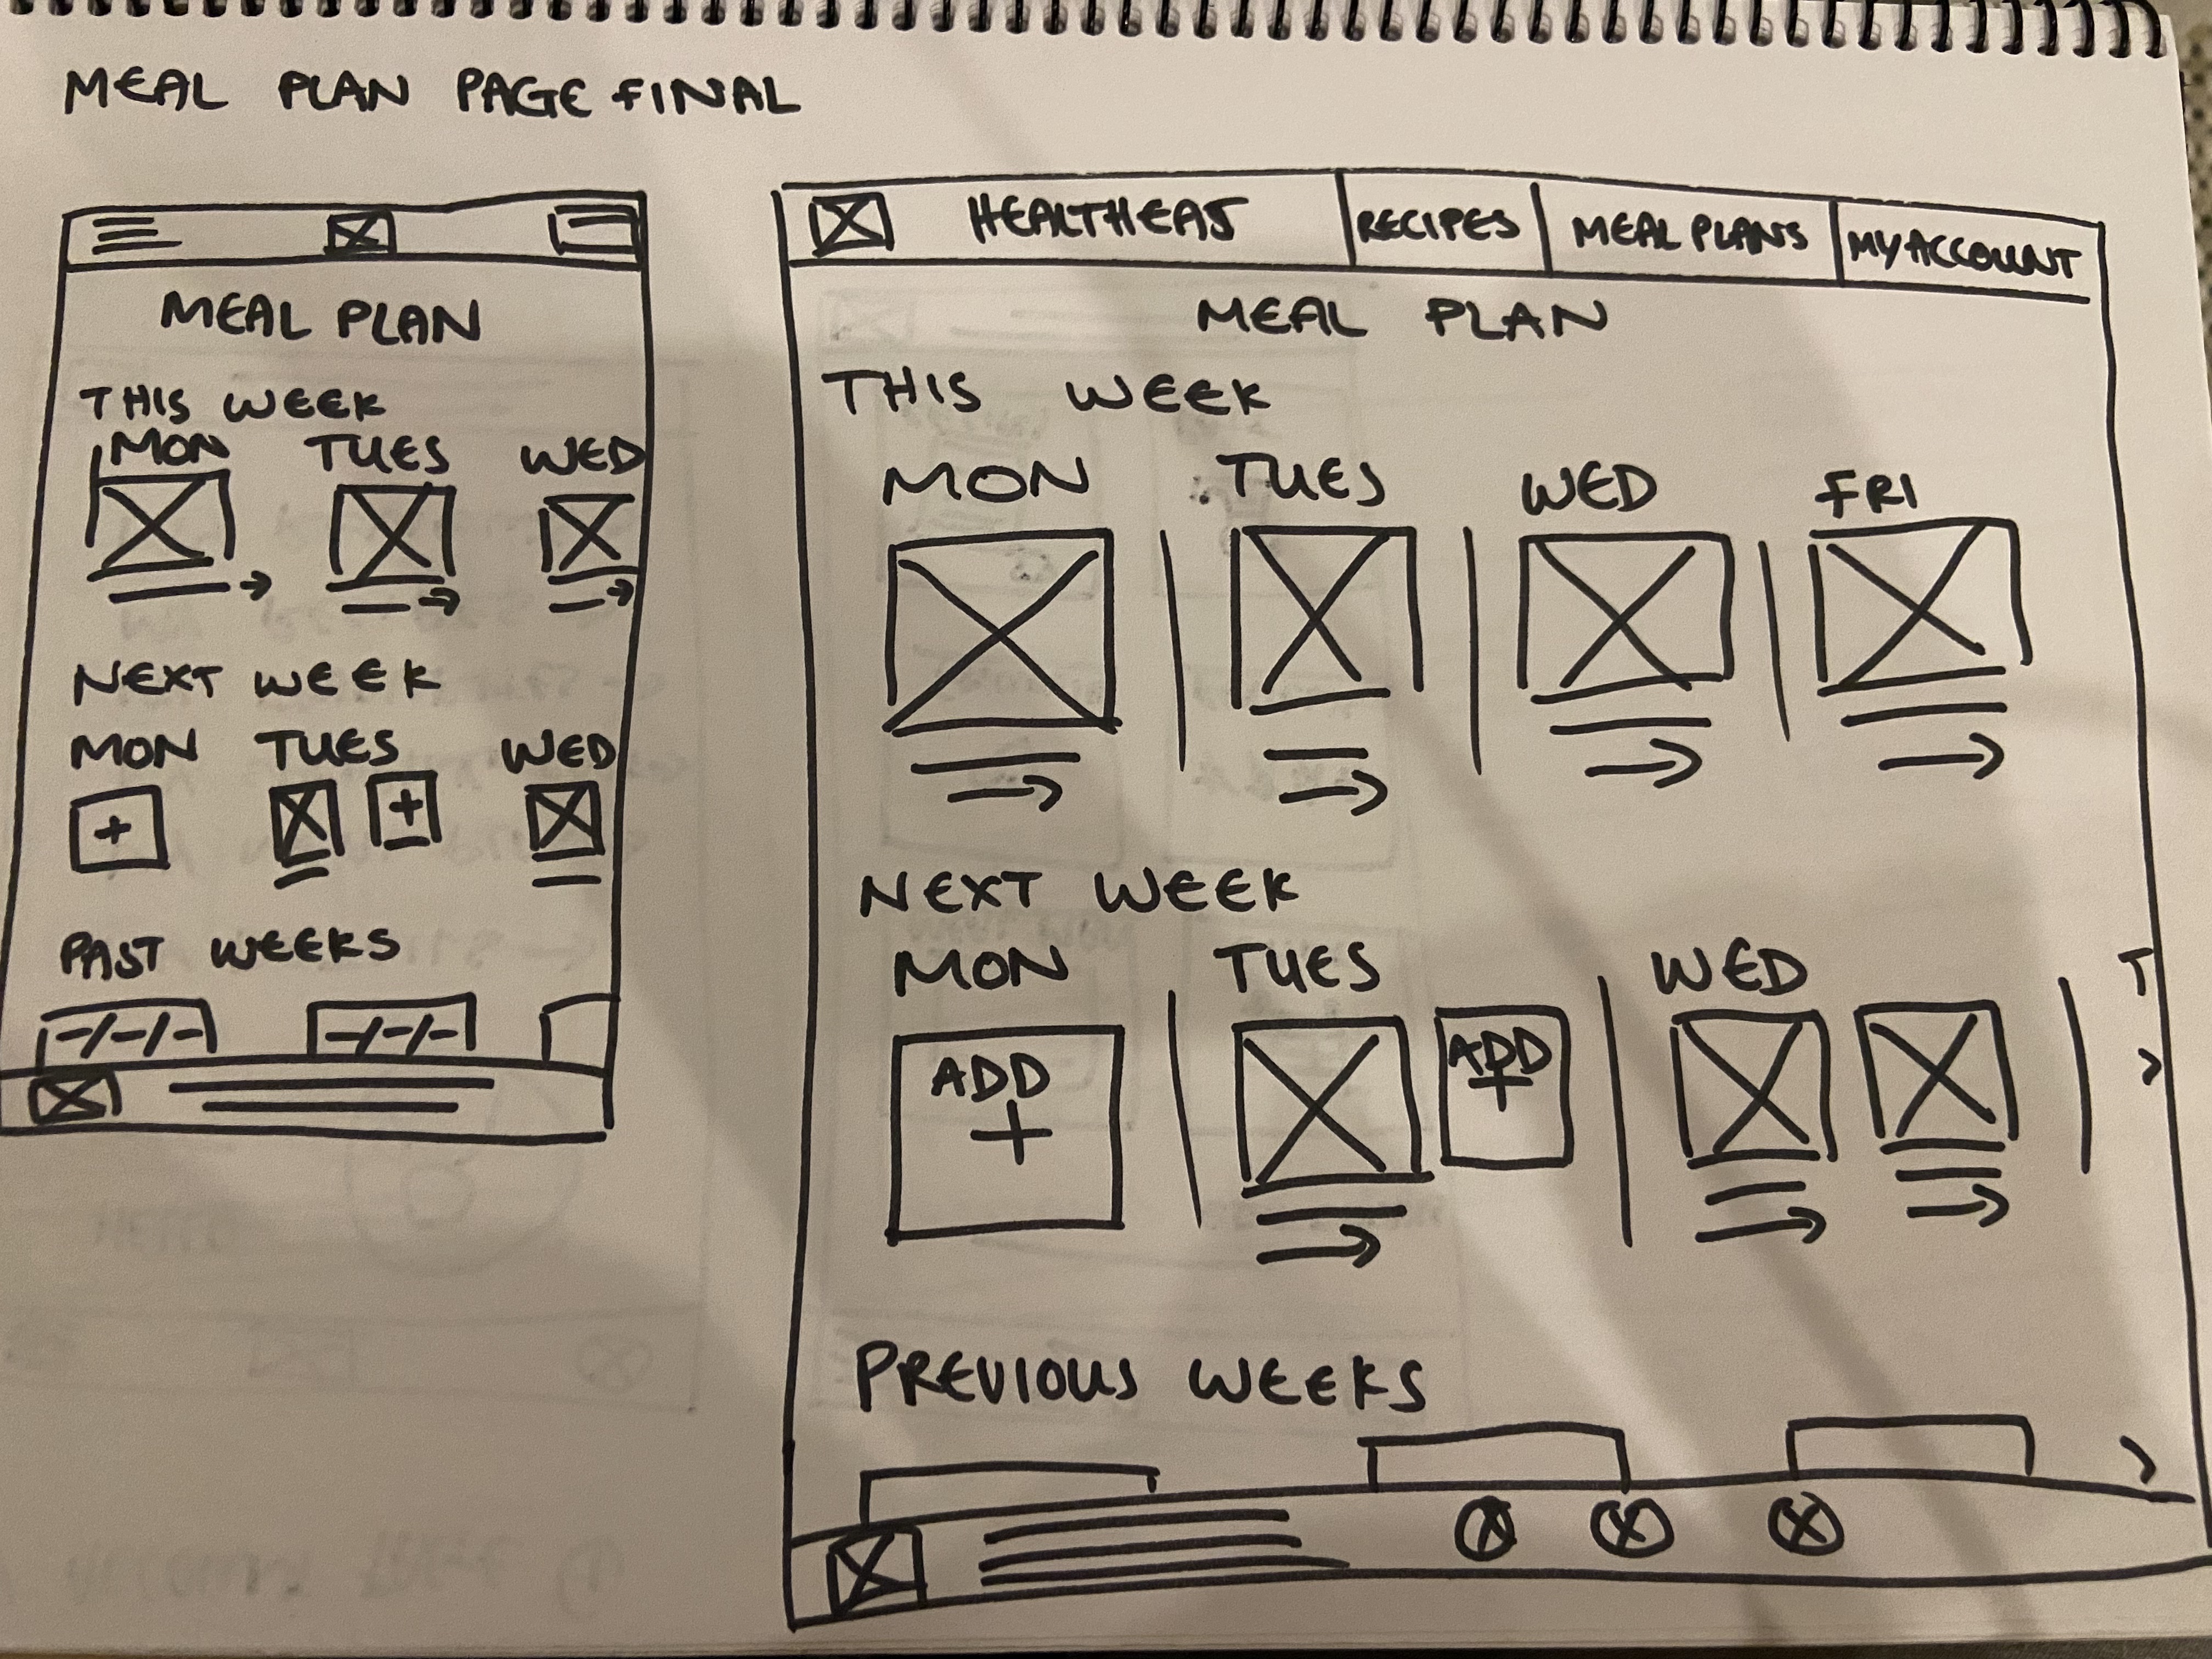 MEAL PLAN PAGE FINAL
MEAL PLAN
THIS WEEK
MON TUES WED
NEXT WEEK
MON TUES WED
+ +
PAST WEEKS
-/-/- -/-/-
HEALTHEAS RECIPES MEAL PLANS MY ACCOUNT
MEAL PLAN
THIS WEEK
MON TUES WED FRI
NEXT WEEK
MON TUES WED T
ADD + ADD +
PREVIOUS WEEKS